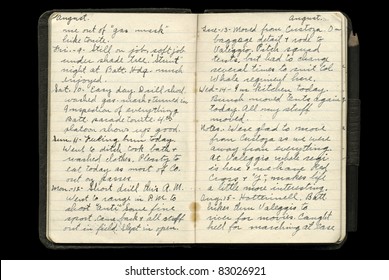 August.
me out of "gas mask"
hike tonite.
Fri.-9. Still on job, soft job
under shade tree. Stunt
night at Batt Hdq. much
enjoyed.
Sat. 10. Easy day. Drill short
washed gas mask turned in
Inspection of everything
Batt parade tonite 4th
platoon shows up good.
Sun. 11. Feeling bum today.
Went to ditch took bath &
washed clothes. Plenty to
eat today as most of Co.
out on passes
Mon-12. Short drill this A.M.
Went to range in P.M. to
shoot. "Tents" some fine
sport. Came back & all stuff
out in field. Slept in open.
August.
Tues-13. Moved from Custoza. On
baggage detail & rode to
Valeggio. Pitch squad
tents, but had to change
several times to suit Col
Whole regiment here.
Wed-14. I'm kitchen today.
Bunch moved tents again
today. All my stuff
moved.
Notes. Were glad to move
from as we were
away from everything
at Valeggio whole regi
is here & we have Red
Cross & "Y", makes life
a little more interesting.
Aug. 15. Batt
hikes thru Valeggio to
river for movies. Caught
hell for marching at ease
83026921